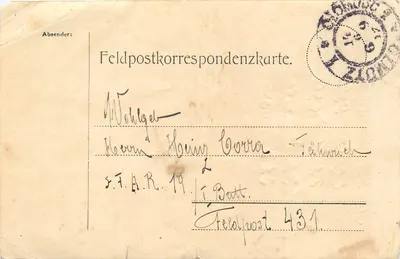 Absender:
Feldpostkorrespondenzkarte.
Wohlgeb
Herrn Heinz Corra Fähnrich
F. A. R. 19
/I Batt.
Feldpost 431
OLMÜTZ 1
OLOMOUC 1